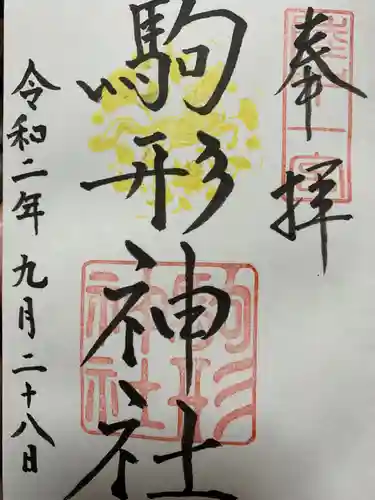 奉拝
駒形神社
令和二年九月二十八日
駒形神社